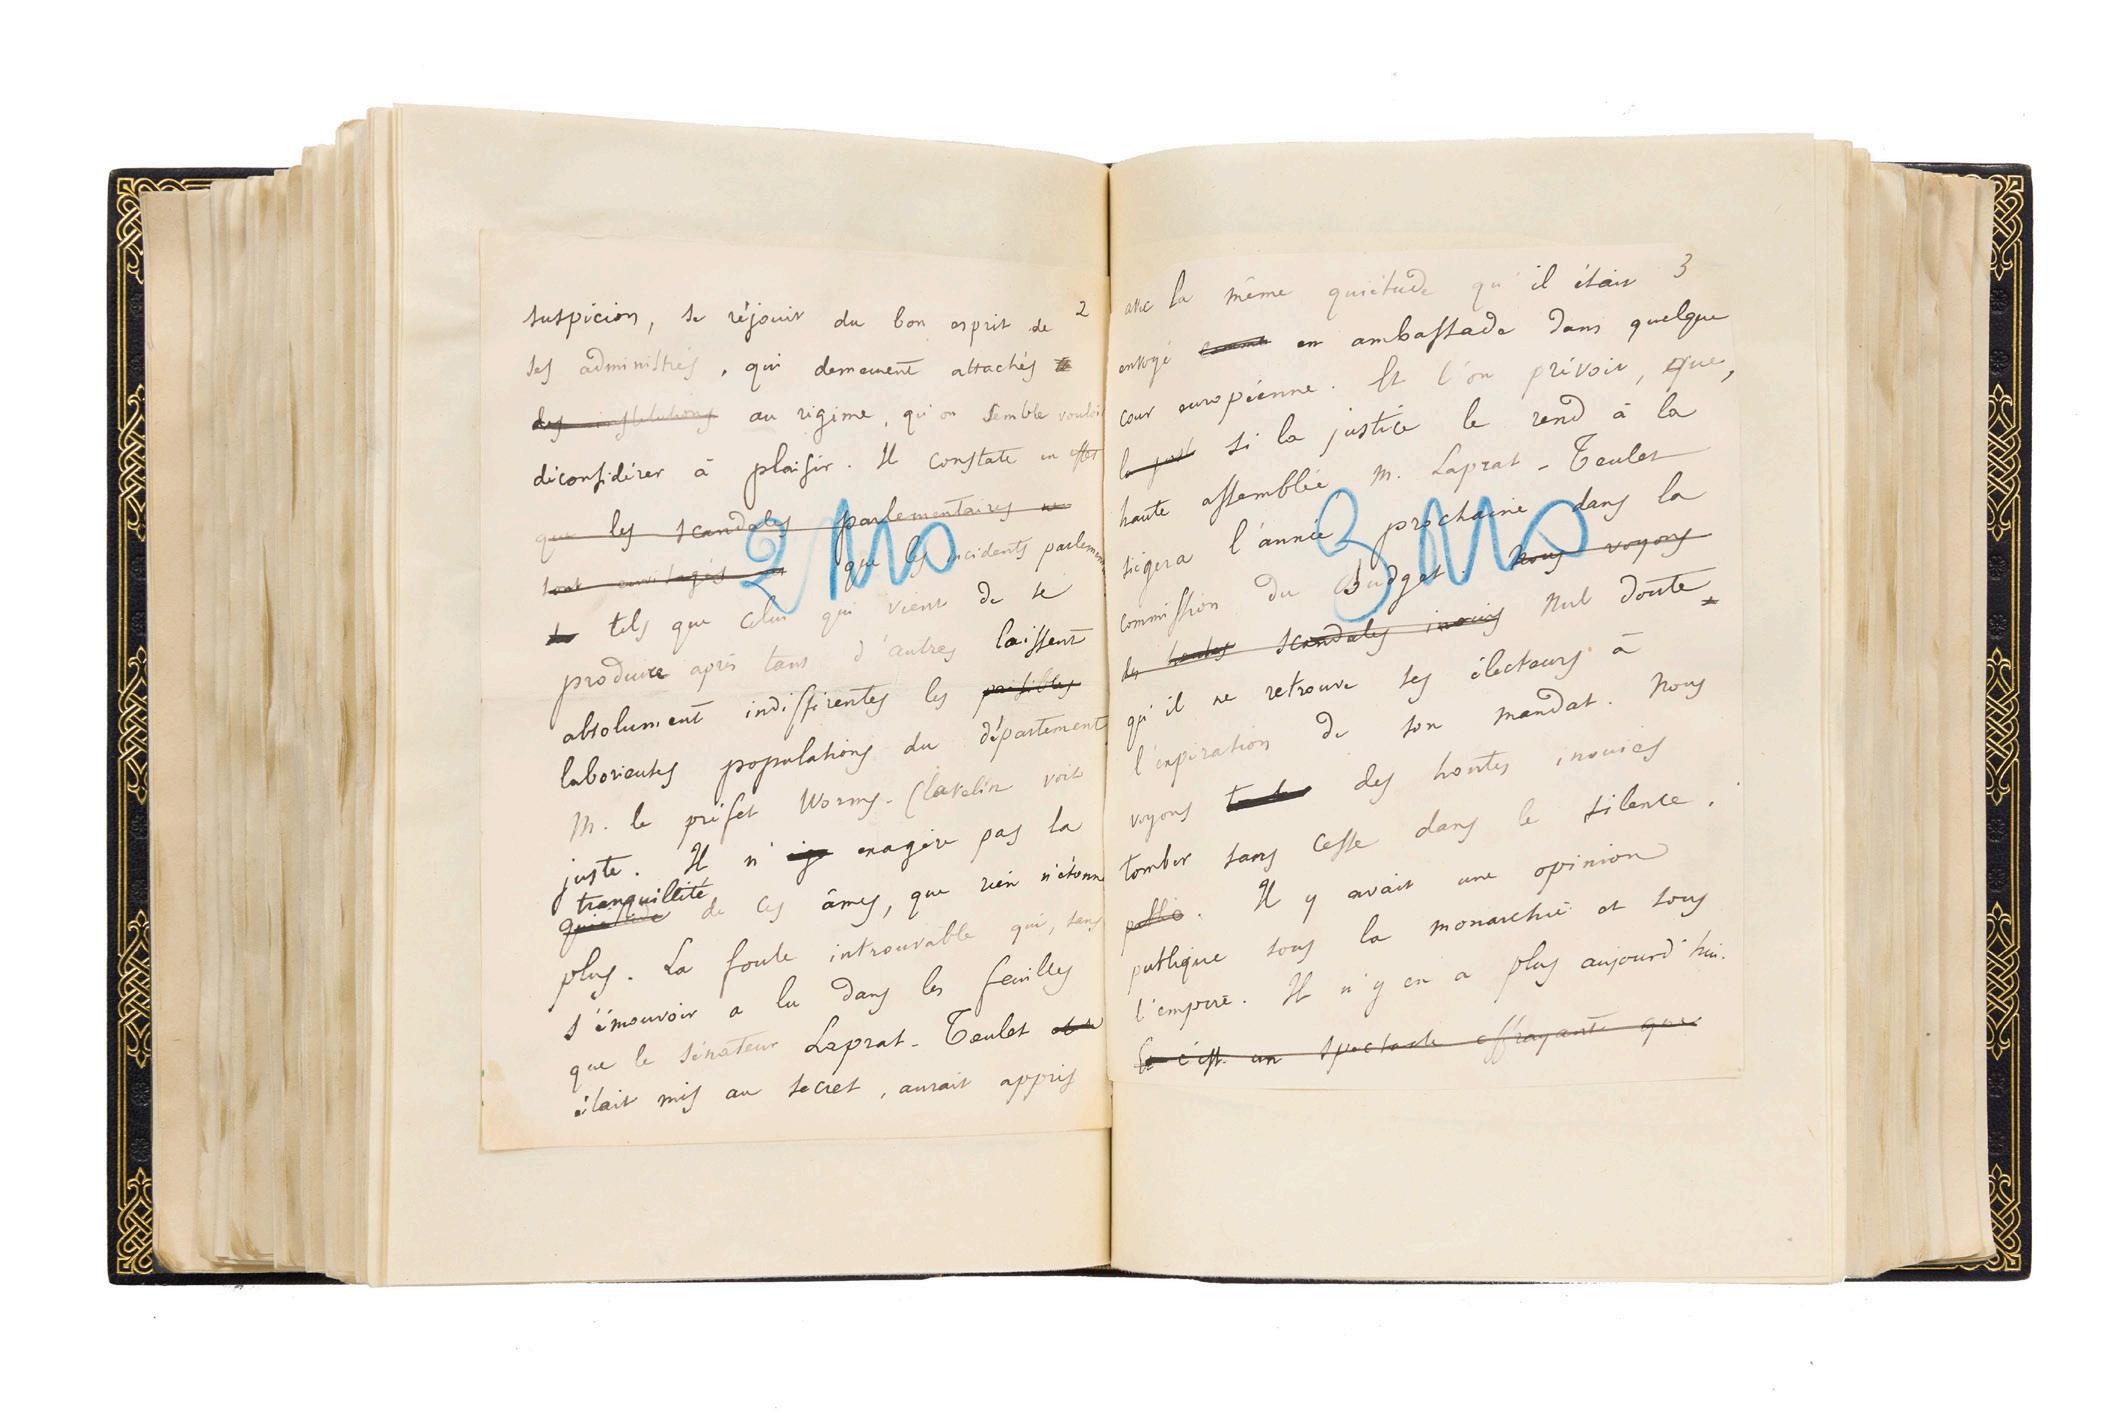 2
suspicion, se réjouir du bon esprit de
ses administrés, qui demeurent attachés
des institutions au régime, qu'on semble vouloir
déconsidérer à plaisir. Il constate en effet
que les scandales parlementaires ne
sont envisagés que les incidents parlemen
tels que celui qui vient de se
produire après tant d'autres laissent
absolument indifférentes les paisibles
laborieuses populations du département
M. le préfet Worms-Clavelin voit
juste. Il n' exagère pas la
tranquillité
quiétude de ces âmes, que rien n'étonne
plus. La foule introuvable qui, sans
s'émouvoir a lu dans les feuilles
que le sénateur Laprat-Teulet
était mis au secret, aurait appris
3
avec la même quiétude qu'il était
envoyé comme en ambassade dans quelque
cour européenne. Et l'on prévoit, que,
si la justice le rend à la
haute assemblée M. Laprat-Teulet
siégera l'année prochaine dans la
commission du budget. Nous voyons
des hontes scandales inouis Nul doute
qu'il ne retrouve ses électeurs à
l'expiration de son mandat. Nous
voyons des hontes inouies
tomber sans cesse dans le silence.
public. Il y avait une opinion
publique sous la monarchie et sous
l'empire. Il n'y en a plus aujourd'hui.
c'est un spectacle effrayant que
2 Mo
3 Mo